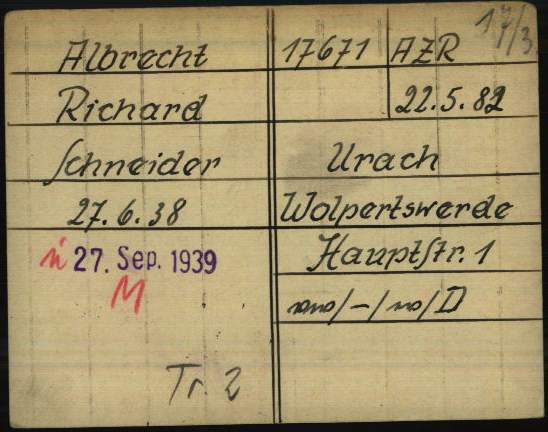 Albrecht 17671 AZR
Richard 22.5.82
Schneider Urach
27.6.38 Wolpertswerde
27. Sep. 1939 Hauptstr. 1
M
/-/ /D
Tr. 2